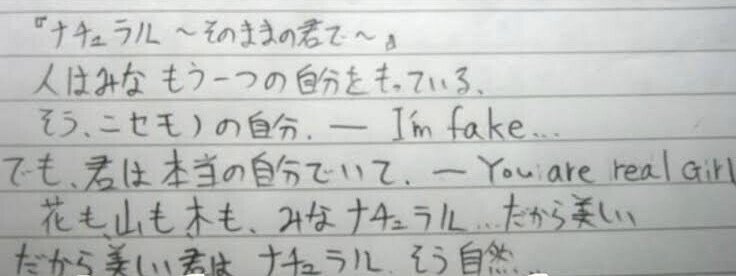 『ナチュラル～そのままの君で～』
人はみなもう一つの自分をもっている、
そう、ニセモノの自分. ― I'm fake...
でも、君は本当の自分でいて. ― You are real Girl
花も山も木も、みなナチュラル...だから美しい
だから美しい君は ナチュラル. そう自然...